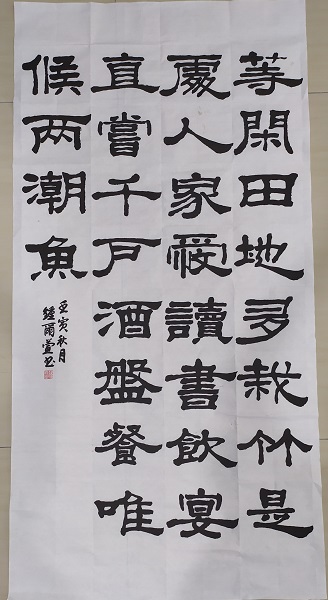 等閑田地多栽竹是
處人家愛讀書飲宴
直嘗千戶酒盤餐唯
候两潮魚
壬寅秋月
爾萱书